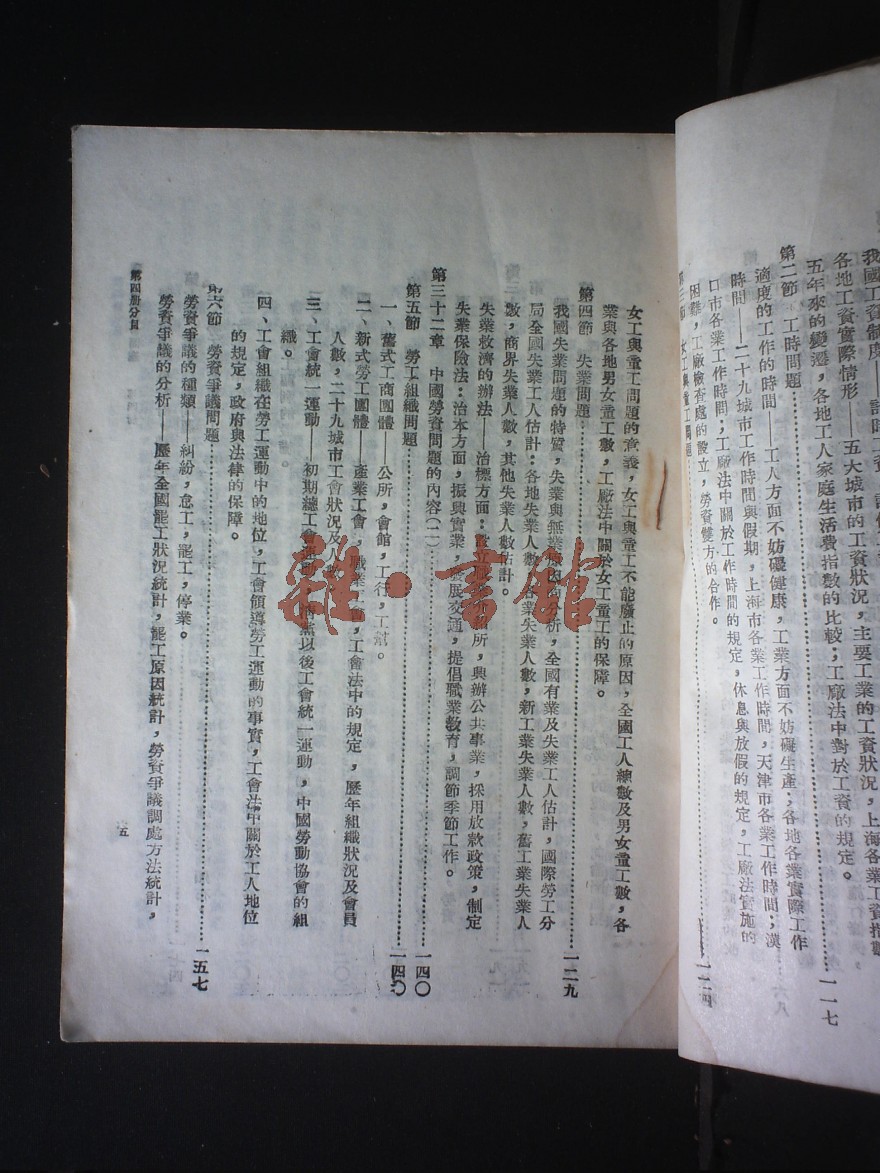 各地工資實際情形——五大城市的工資狀況，主要工業的工資狀況，上海各業工資指數
五年來的變遷，各地工人家庭生活費指數的比較；工廠法中對於工資的規定。
第二節　工時問題……一一七
適度的工作的時間——工人方面不妨礙健康，工業方面不妨礙生產；各地各業實際工作
時間——二十九城市工作時間與假期，上海市各業工作時間，天津市各業工作時間；漢
口市各業工作時間；工廠法中關於工作時間的規定，休息與放假的規定，工廠法實施的
困難，工廠檢查處的設立，勞資雙方的合作。
第三節　女工與童工問題……一二四
女工與童工問題的意義，女工與童工不能廢止的原因，全國工人總數及男女童工數，各
業與各地男女童工數，工廠法中關於女工童工的保障。
第四節　失業問題……一二九
我國失業問題的特質，失業與無業原因的分析，全國有業及失業工人估計，國際勞工分
局全國失業工人估計：各地失業人數，各業失業人數，新工業失業人數，舊工業失業人
數，商界失業人數，其他失業人數估計。
失業救濟的辦法——治標方面：設立職業介紹所，興辦公共事業，採用放款政策，制定
失業保險法：治本方面，振興實業，發展交通，提倡職業教育，調節季節工作。
第三十二章　中國勞資問題的內容(二)……一四〇
第五節　勞工組織問題……一四〇
一、舊式工商團體——公所，會館，工行，工幫。
二、新式勞工團體——產業工會，職業工會，工會法中的規定，歷年組織狀況及會員
人數，二十九城市工會狀況及人數。
三、工會統一運動——初期總工會運動，清黨以後工會統一運動，中國勞動協會的組
織。
四、工會組織在勞工運動中的地位，工會領導勞工運動的事實，工會法中關於工人地位
的規定，政府與法律的保障。
第六節　勞資爭議問題……一五七
勞資爭議的種類——糾紛，怠工，罷工，停業。
勞資爭議的分析——歷年全國罷工狀況統計，罷工原因統計，勞資爭議調處方法統計，
第四册分目
五
雜·書館